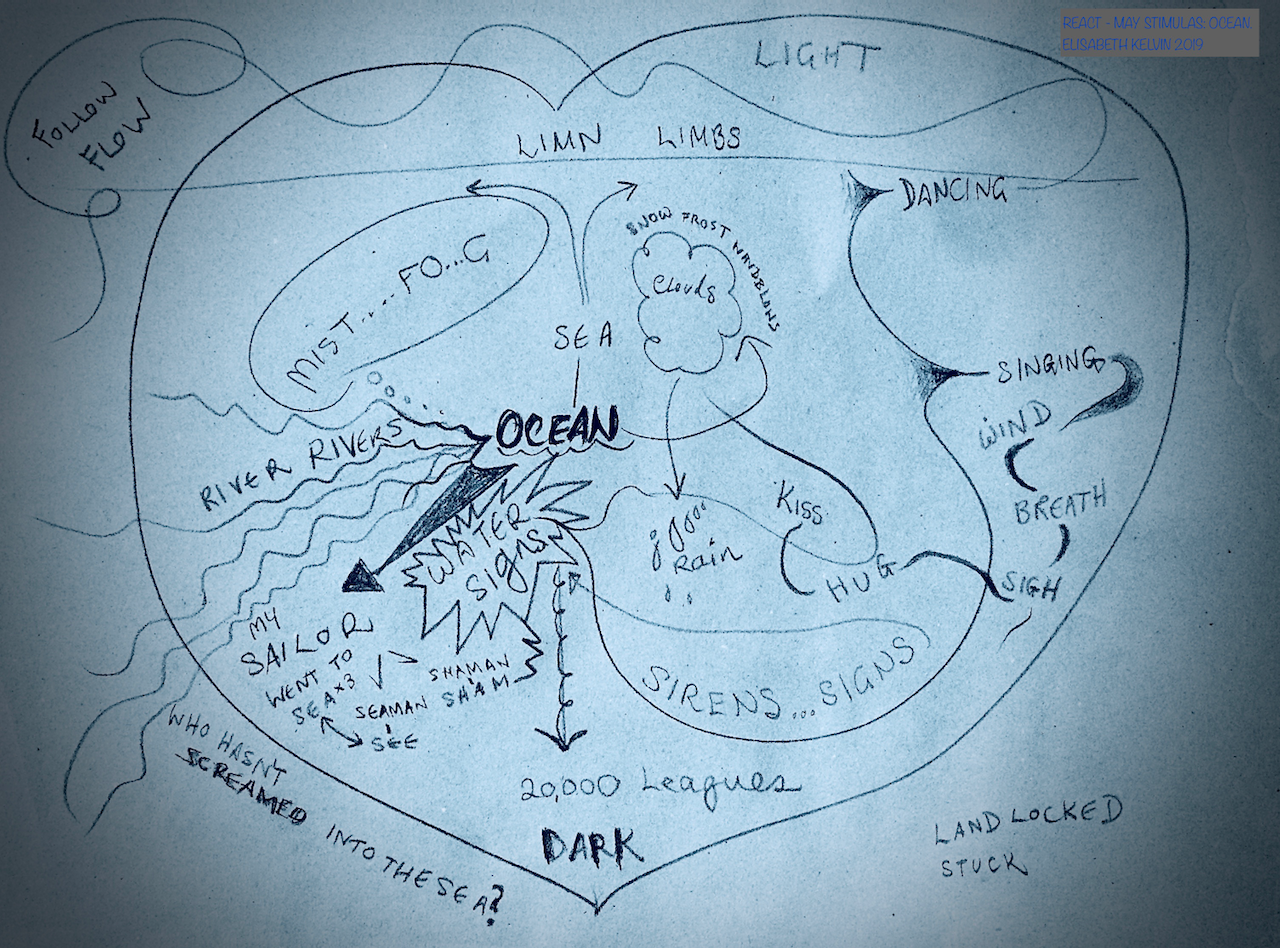 REACT - MAY STIMULAS: OCEAN.
ELISABETH KELVIN 2019
LIGHT
FOLLOW
FLOW
LIMN LIMBS
DANCING
SNOW FROST
Clouds
MIST.... FO...G
SEA
SINGING
OCEAN
WIND
RIVER RIVERS
BREATH
KISS
WATER
SIGNS
RAIN
HUG
SIGH
MY
SAILOR
WENT TO
SEA x3
SHAMAN
SHAM
SEAMAN
SEE
SIRENS...SIGNS
WHO HASN'T
SCREAMED INTO THE SEA?
20,000 Leagues
DARK
LAND LOCKED
STUCK